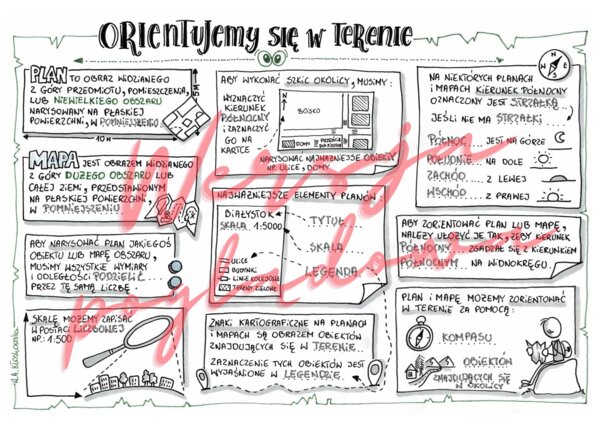 ORIENTUJEMY SIĘ W TERENIE
PLAN TO OBRAZ WIDZIANEGO
Z GÓRY PRZEDMIOTU, POMIESZCZENIA,
LUB NIEWIELKIEGO OBSZARU
NARYSOWANY NA PŁASKIEJ
POWIERZCHNI, W POMNIEJSZENIU
10 M
MAPA JEST OBRAZEM WIDZIANEGO
Z GÓRY DUŻEGO OBSZARU LUB
CAŁEJ ZIEMI, PRZEDSTAWIONYM
NA PŁASKIEJ POWIERZCHNI,
W POMNIEJSZENIU
ABY NARYSOWAĆ PLAN JAKIEGOŚ
OBIEKTU LUB MAPĘ OBSZARU,
MUSIMY WSZYSTKIE WYMIARY
I ODLEGŁOŚCI PODZIELIĆ
PRZEZ TĘ SAMĄ LICZBĘ.
SKALĘ MOŻEMY ZAPISAĆ
W POSTACI LICZBOWEJ
NP.: 1:500
ABY WYKONAĆ SZKIC OKOLICY, MUSIMY:
WYZNACZYĆ
KIERUNEK
PÓŁNOCNY
I ZAZNACZYĆ
GO NA
KARTCE
N
BOISKO
DOMY
NARYSOWAĆ NAJWAŻNIEJSZE OBIEKTY
NP. ULICE, DOMY
NAJWAŻNIEJSZE ELEMENTY PLANÓW:
BIAŁYSTOK
SKALA 1:5000
ULICE
BUDYNKI
LINIE KOLEJOWE
TERENY ZIELONE
TYTUŁ
SKALA
LEGENDA
ZNAKI KARTOGRAFICZNE NA PLANACH
I MAPACH SĄ OBRAZEM OBIEKTÓW
ZNAJDUJĄCYCH SIĘ W TERENIE
ZNACZENIE TYCH OBIEKTÓW JEST
WYJAŚNIONE W LEGENDZIE
N
E
S
W
NA NIEKTÓRYCH PLANACH
I MAPACH KIERUNEK PÓŁNOCNY
OZNACZONY JEST STRZAŁKĄ
JEŚLI NIE MA STRZAŁKI
PÓŁNOC JEST NA GÓRZE
POŁUDNIE NA DOLE
ZACHÓD Z LEWEJ
WSCHÓD Z PRAWEJ
ABY ZORIENTOWAĆ PLAN LUB MAPĘ,
NALEŻY UŁOŻYĆ JE TAK, ŻEBY KIERUNEK
PÓŁNOCNY ZGADZAŁ SIĘ Z KIERUNKIEM
PÓŁNOCNYM NA WIDNOKRĘGU.
PLAN I MAPĘ MOŻEMY ZORIENTOWAĆ
W TERENIE ZA POMOCĄ:
KOMPASU
OBIEKTÓW
ZNAJDUJĄCYCH SIĘ
W OKOLICY
Wersja
poglądowa